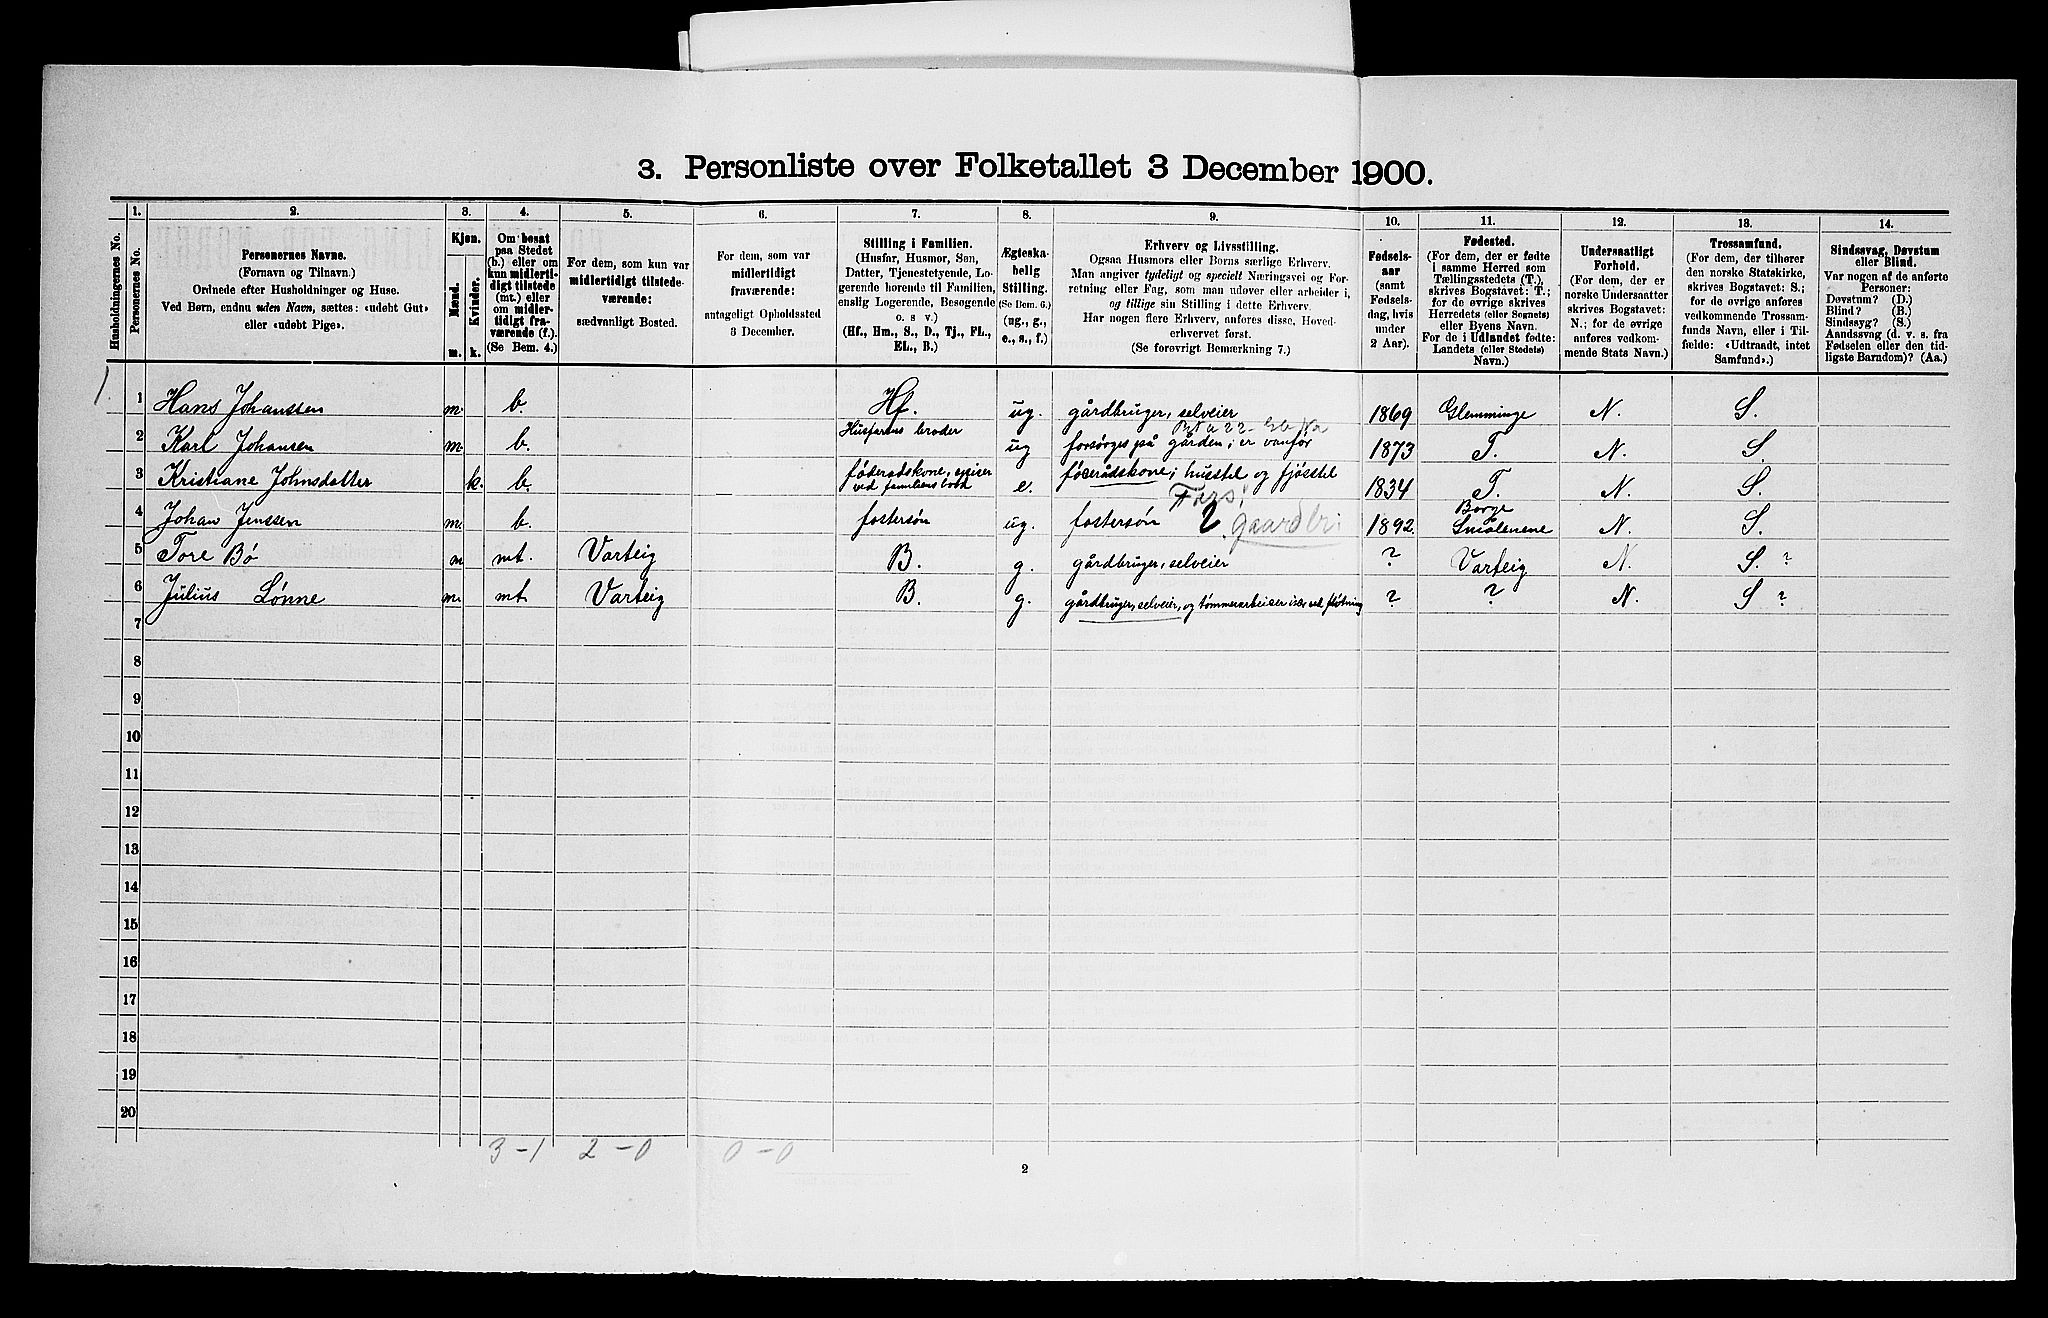 3. Personliste over Folketallet 3 December 1900.
Husholdningernes No.
1.
Personernes No.
2.
Personernes Navne.
(Fornavn og Tilnavn.)
Ordnede efter Husholdninger og Huse.
Ved Børn, endnu uden Navn, sættes: «udøbt Gut»
eller «udøbt Pige».
3.
Kjøn.
Mænd.
Kvinder.
m.
k.
4.
Om bosat
paa Stedet
(b.) eller om
kun midlerti-
digt tilstede
(mt.) eller
om midler-
tidigt fra-
værende (f.).
(Se Bem. 4.)
5.
For dem, som kun var
midlertidigt tilstede-
værende:
sædvanligt Bosted.
6.
For dem, som var
midlertidigt
fraværende:
antageligt Opholdssted
3 December.
7.
Stilling i Familien.
(Husfar, Husmor, Søn,
Datter, Tjenestetyende, Lo-
gerende hørende til Familien,
enslig Logerende, Besøgende
o. s v.)
(Hf., Hm., S., D., Tj., FL.,
EL., B.)
8.
Ægteska-
belig
Stilling.
(Se Bem. 6.)
(ug., g.,
e., s., f.)
9.
Erhverv og Livsstilling.
Ogsaa Husmors eller Børns særlige Erhverv.
Man angiver tydeligt og specielt Næringsvei og For-
retning eller Fag, som man udøver eller arbeider i,
og tillige sin Stilling i dette Erhverv.
Har nogen flere Erhverv, anføres disse, Hoved-
erhvervet først.
(Se forøvrigt Bemærkning 7.)
10.
Fødsels-
aar
(samt
Fødsels-
dag, hvis
under
2 Aar).
11.
Fødested.
(For dem, der er fødte
i samme Herred som
Tællingsstedets (T.),
skrives Bogstavet: T.;
for de øvrige skrives
Herredets (eller Sognets)
eller Byens Navn.
For de i Udlandet fødte:
Landets (eller Stedets)
Navn.)
12.
Undersaatligt
Forhold.
(For dem, der er
norske Undersaatter
skrives Bogstavet:
N.; for de øvrige
anføres vedkom-
mende Stats Navn.)
13.
Trossamfund.
(For dem, der tilhører
den norske Statskirke,
skrives Bogstavet: S.;
for de øvrige anføres
vedkommende Trossam-
funds Navn, eller i Til-
fælde: «Udtraadt, intet
Samfund».)
14.
Sindssvag, Døvstum
eller Blind.
Var nogen af de anførte
Personer:
Døvstum? (D.)
Blind? (B.)
Sindssyg? (S.)
Aandssvag (d. v. s. fra
Fødselen eller den tid-
ligste Barndom)? (Aa.)
1. 1 Hans Johanssen m. b. Hf. ug. gårdbruger, selveier 1869 Glemminge N. S.
2 Karl Johansen m. b. Husfarens broder ug forsørges på gården; er vanför 1873 T. N. S.
3 Kristiane Johnsdatter k. b. föderadskone, spiser
ved familiens bord e. föderådskone; husstel og fjösstel 1834 T. N. S.
Fors.
4 Johan Jenssen m. b. fostersön ug. fostersön 2. gaardbr: 1892. Borge
Smålenene N. S.
5 Tore Bö m mt. Varteig B. g. gårdbruger, selveier ? Varteig N. S. ?
6 Julius Lönne m. mt. Varteig B. g. gårdbruger, selveier, og tömmerarbeider især ved flötning ? ? N. S ?
7
8
9
10
11
12
13
14
15
16
17
18
19
20
3-1 2-0 0-0
2